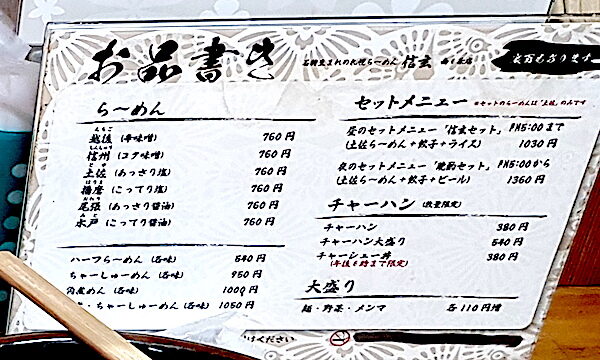 お品書き
石狩生まれの札幌らーめん 信玄 南6条店
らーめん
えちご
越後 (辛味噌) 760円
しんしゅう
信州 (コク味噌) 760円
とさ
土佐 (あっさり塩) 760円
はりま
播磨 (こってり塩) 760円
おわり
尾張 (あっさり醤油) 760円
みと
水戸 (こってり醤油) 760円
ハーフらーめん (各味) 540円
ちゃーしゅーめん (各味) 950円
角煮めん (各味) 1000円
・ちゃーしゅーめん (各味) 1050円
セットメニュー ※セットのらーめんは「土佐」のみです
昼のセットメニュー「信玄セット」PM5:00まで
(土佐らーめん+餃子+ライス) 1030円
夜のセットメニュー「晩酌セット」PM5:00から
(土佐らーめん+餃子+ビール) 1360円
チャーハン (数量限定)
チャーハン 380円
チャーハン大盛り 540円
チャーシュー丼 380円
(午後6時まで限定)
大盛り
麺・野菜・メンマ 各110円増
ください